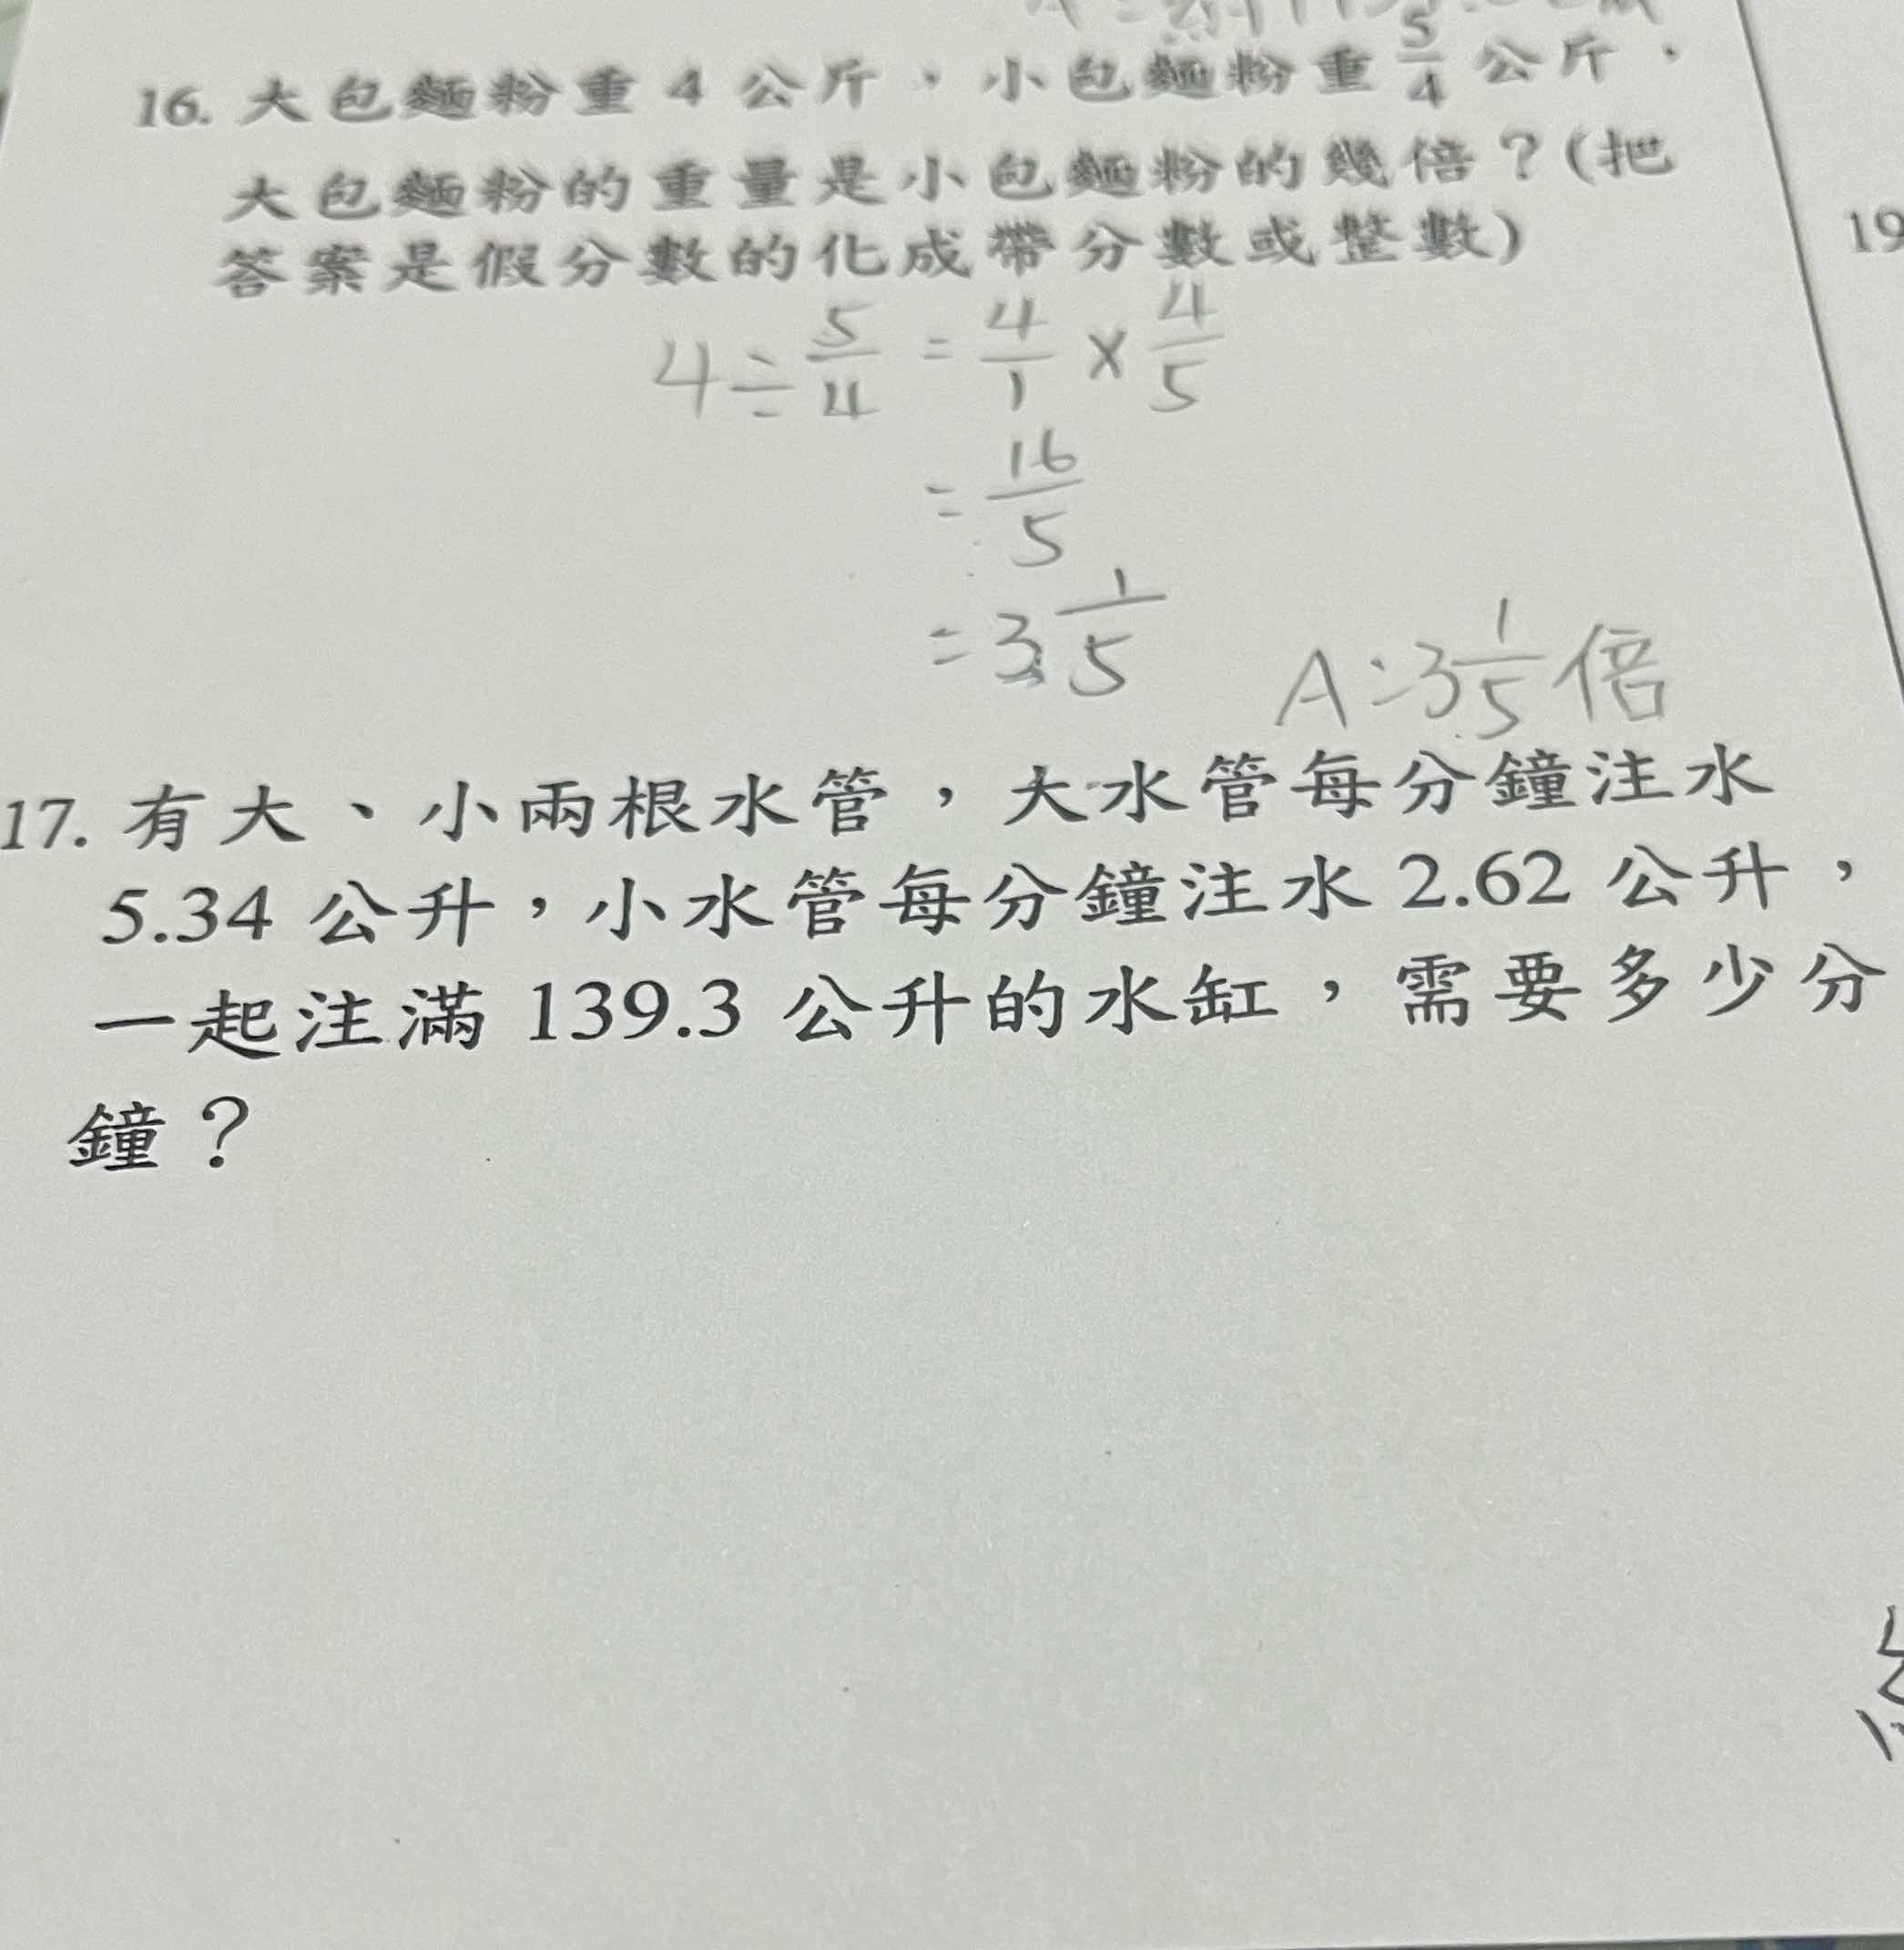 16. 大包麵粉重 4 公斤，小包麵粉重 5/4 公斤，
大包麵粉的重量是小包麵粉的幾倍？(把
答案是假分數的化成帶分數或整數)
4÷5/4=4/1×4/5
=16/5
=3 1/5
A:3 1/5倍
17. 有大、小兩根水管，大水管每分鐘注水
5.34 公升，小水管每分鐘注水 2.62 公升，
一起注滿 139.3 公升的水缸，需要多少分
鐘？
19